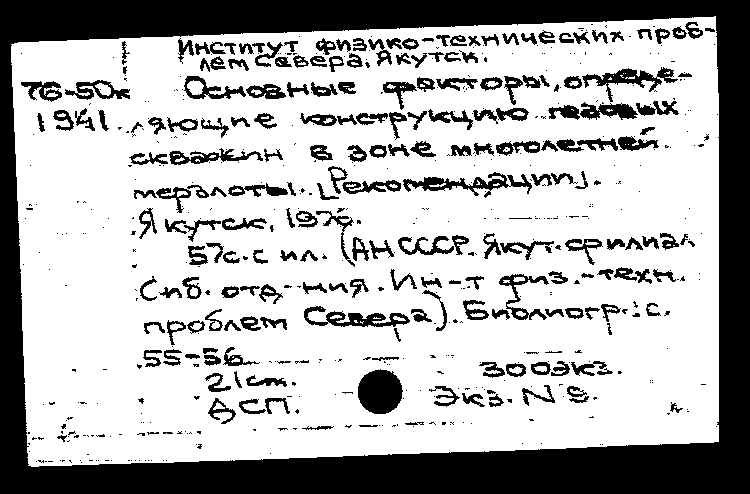 Институт физико-технических проб-
лем Севера, Якутск.
76-50к Основные факторы, опреде-
1941. ляющие конструкцию газовых
скважин в зоне многолетней
мерзлоты. [Рекомендации].
Якутск, 1976.
57с. с ил. (АН СССР. Якут. филиал
Сиб. отд-ния. Ин-т физ.-техн.
проблем Севера). Библиогр.: с.
55-56
21см. 300экз.
ДСП. Экз. N 9.